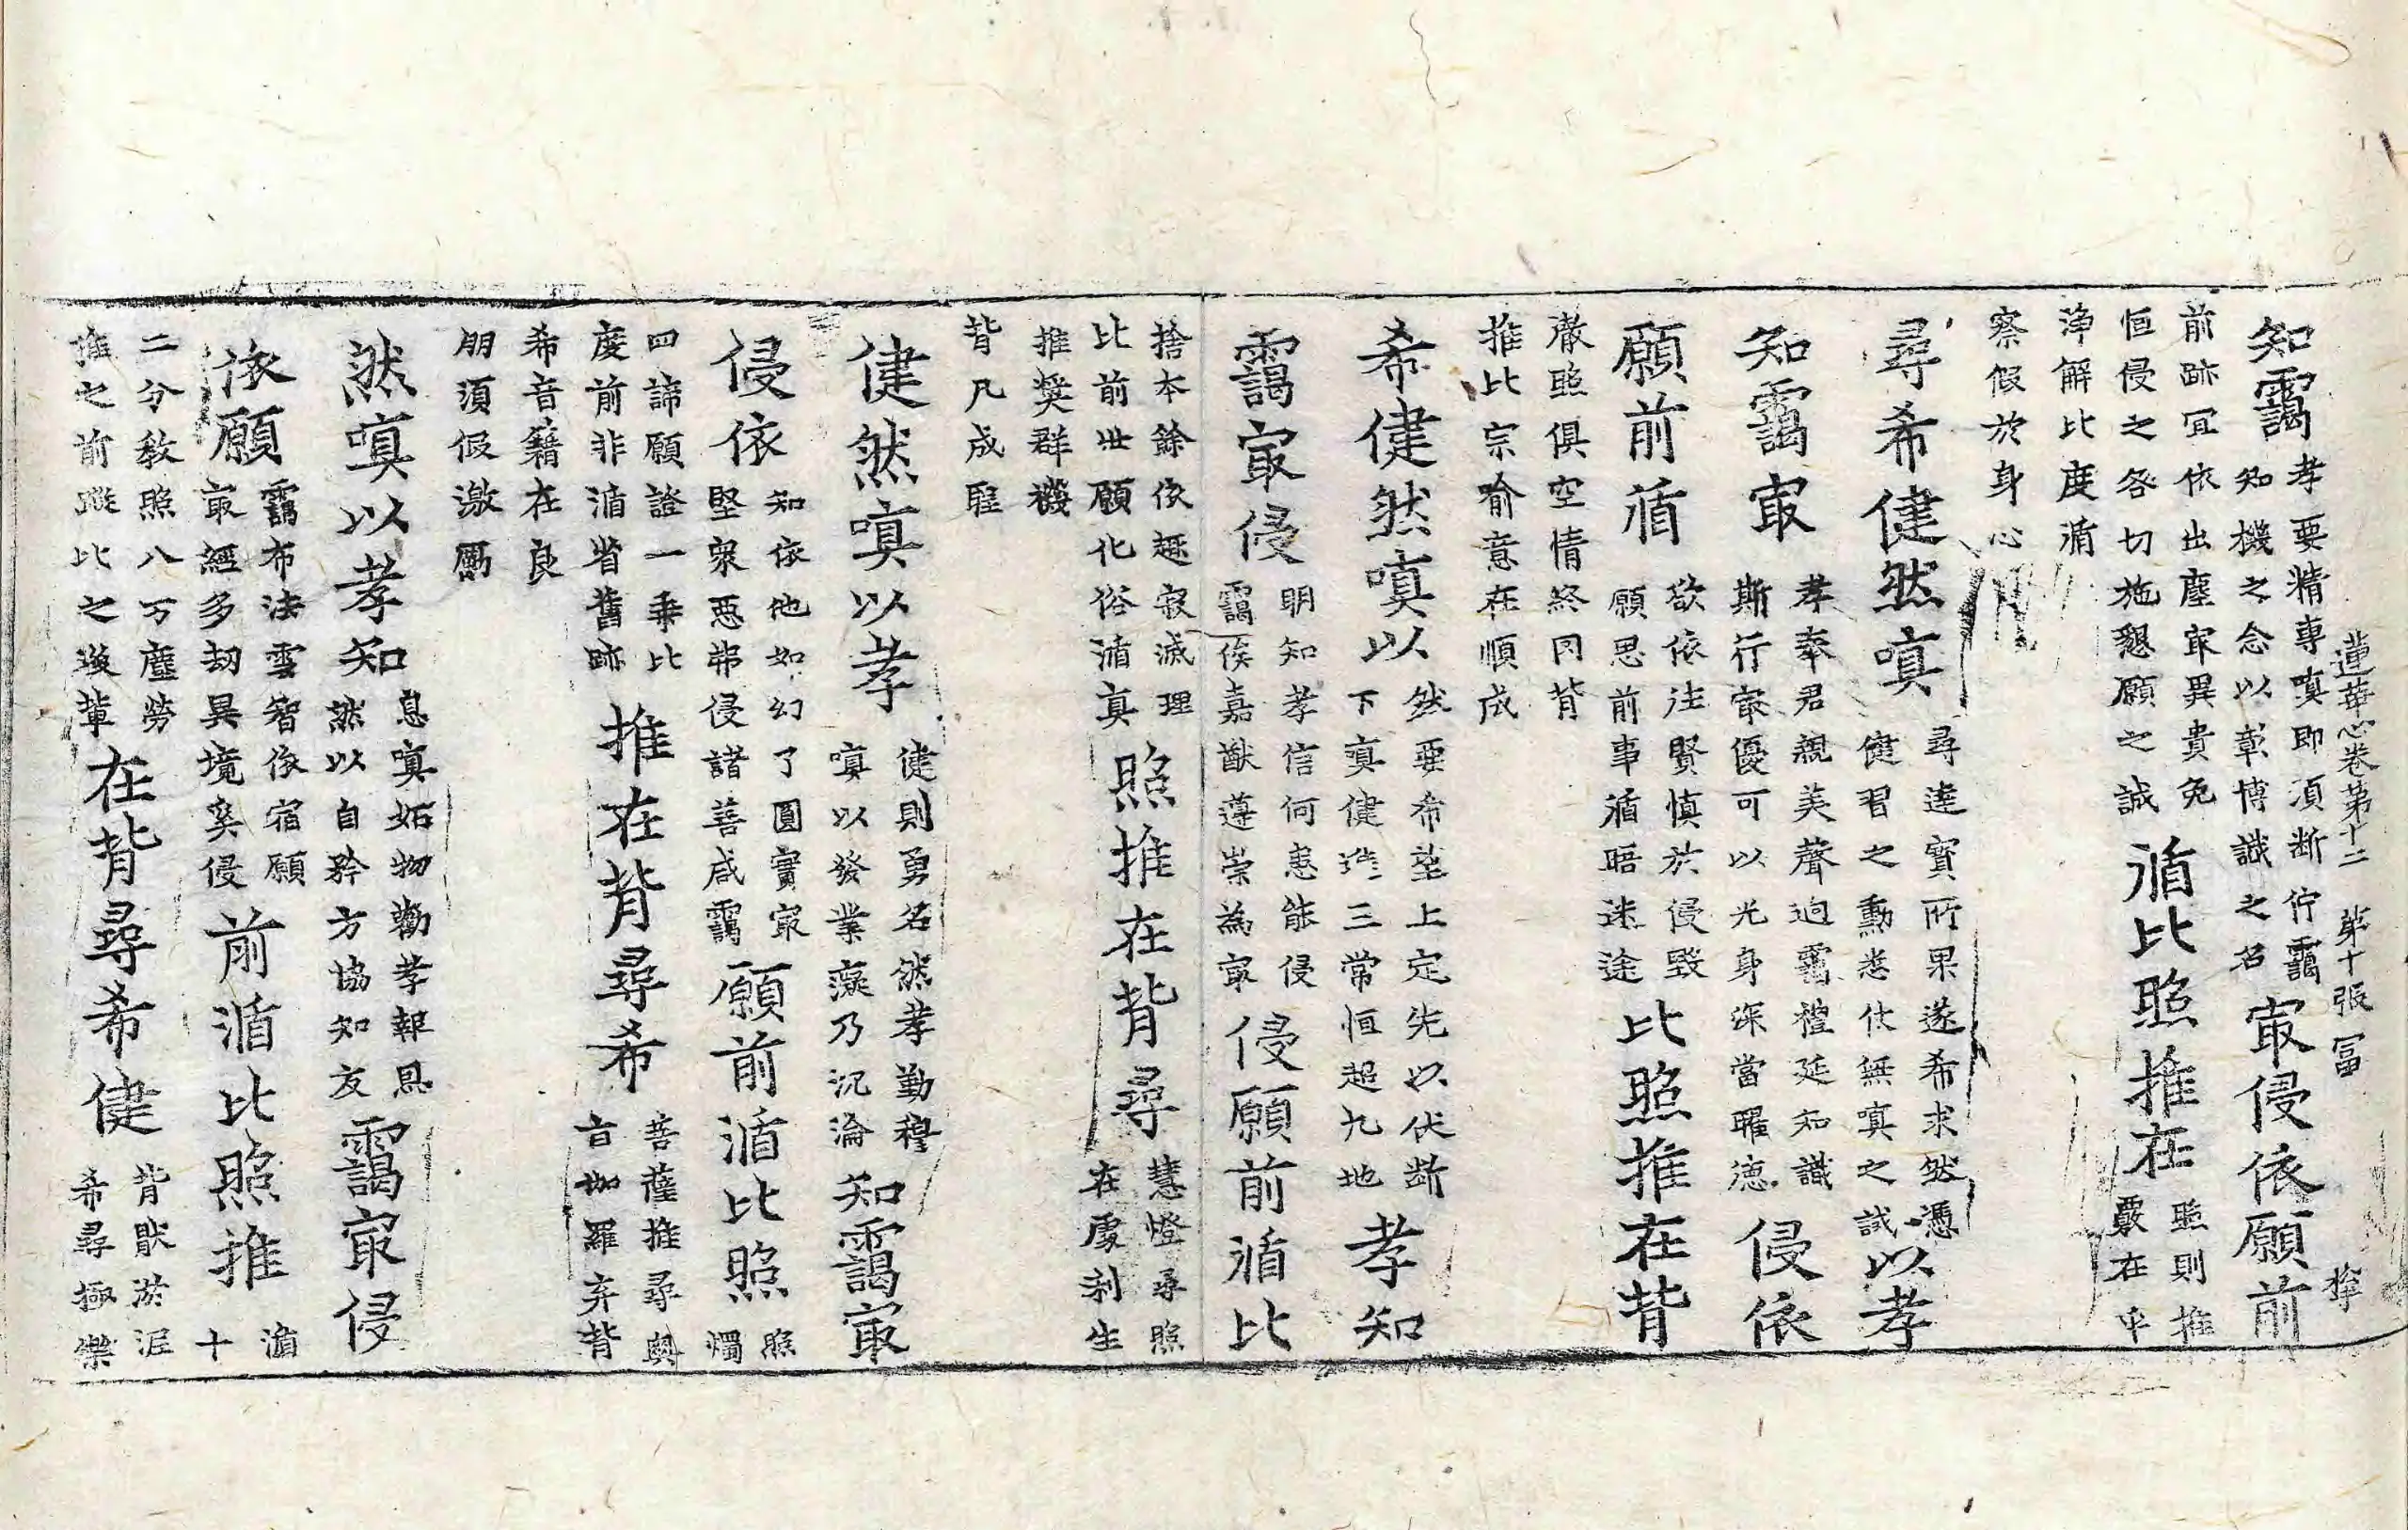 蓮華心卷第十二 第十張 冨
知靄
孝要精專嗔即須断佇靄
知機之念以彰博識之名
㝡侵依願前
前跡冝依出塵㝡異貴免
恒侵之咎切施懇願之誠
循比照推在
照則推
覈在乎
淨解比度循
察假於身心
尋希健然嗔
尋達寶所果遂希求然憑
健習之勳悉仗無嗔之誡
以孝
知靄㝡
孝奉君親美聲迥靄禮延知識
斯行㝡優可以光身深當曜德
侵依
願前循
欲依法賢慎於侵毀
願思前事循晤迷途
比照推在背
澈照俱空情終同背
推比宗喻意在順成
希健然嗔以
然要希望上定先以伏断
下嗔健進三常恒超九地
孝知
靄㝡侵
明知孝信何恚能侵
靄俟嘉猷遵崇為㝡
侵願前循比
捨本餘依趣寂滅理
比前世願化俗循真
照推在背尋
慧燈尋照
在處利生
推獎群機
背凡成聖
健然嗔以孝
健則勇名然孝勤穆
嗔以發業癡乃沉淪
知靄㝡
侵依
知依他如幻了圓實㝡
堅眾惡弗侵諸善咸靄
願前循比照
照
燭
四諦願證一乘比
度前非循省舊跡
推在背尋希
菩薩推尋與
旨伽羅弃背
希音籍在良
朋須假激勵
然嗔以孝知
息嗔妬物勸孝報恩
然以自矜方協知友
靄㝡侵
依願
靄布法雲智依宿願
㝡經多劫異境奚侵
前循比照推
循
十
二分教照八万塵勞
推之前蹤比之後輩
在背尋希健
背猒於泥
希尋極樂